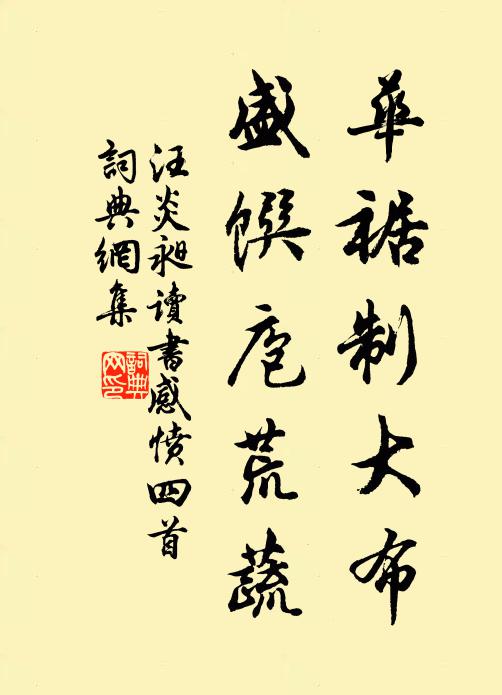 華裾制大布
盛饌庖荒蔬
汪炎昶讀書感憤四首
詞典網集
詞典網印